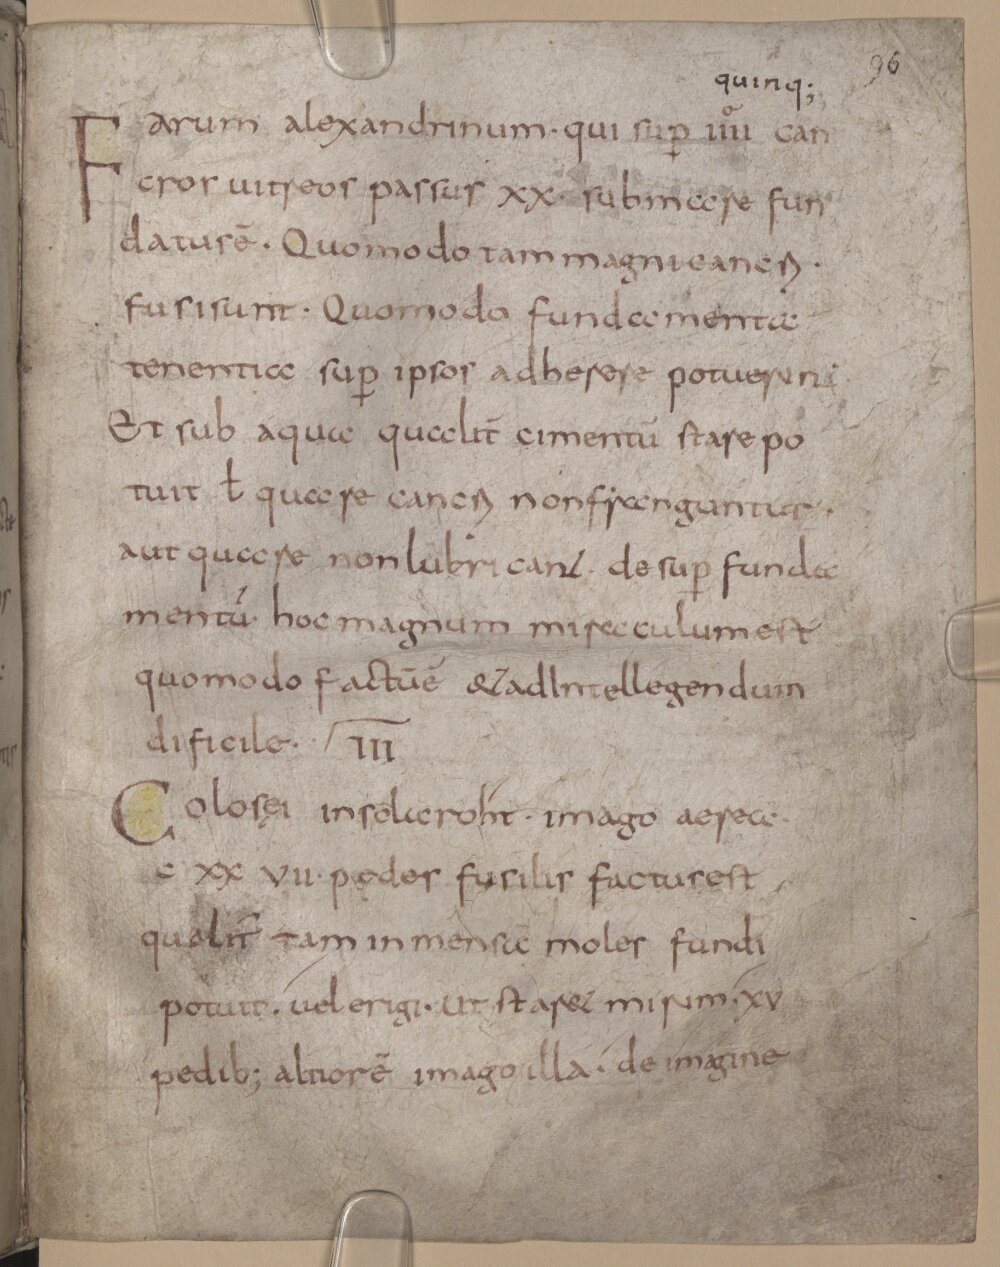 96
quinq;
Farum alexandrinum. qui sup̱ iiii can
cros uitreos passus xx. sub mare fun
datus ē. Quomodo tam magni cancri.
fusi sunt. Quomodo fundamenta
tenentia sup̱ ipsos adherere potuerunt
Et sub aqua qualit̄ cimentū stare po
tuit ł quare cancri non franguntur.
aut quare non lubricant. desup̱ funda
mentū. hoc magnum miraculum est
quomodo factū ē & ad Intellegendum
dificile. III
Colosei insola roht. imago aerea.
c xx vii. pedes fusilis factus est
qualit̄ tam inmensa moles fundi
potuit. uel erigi. ut star& mirum. xv
pedib; altior ē imago illa. de imagine